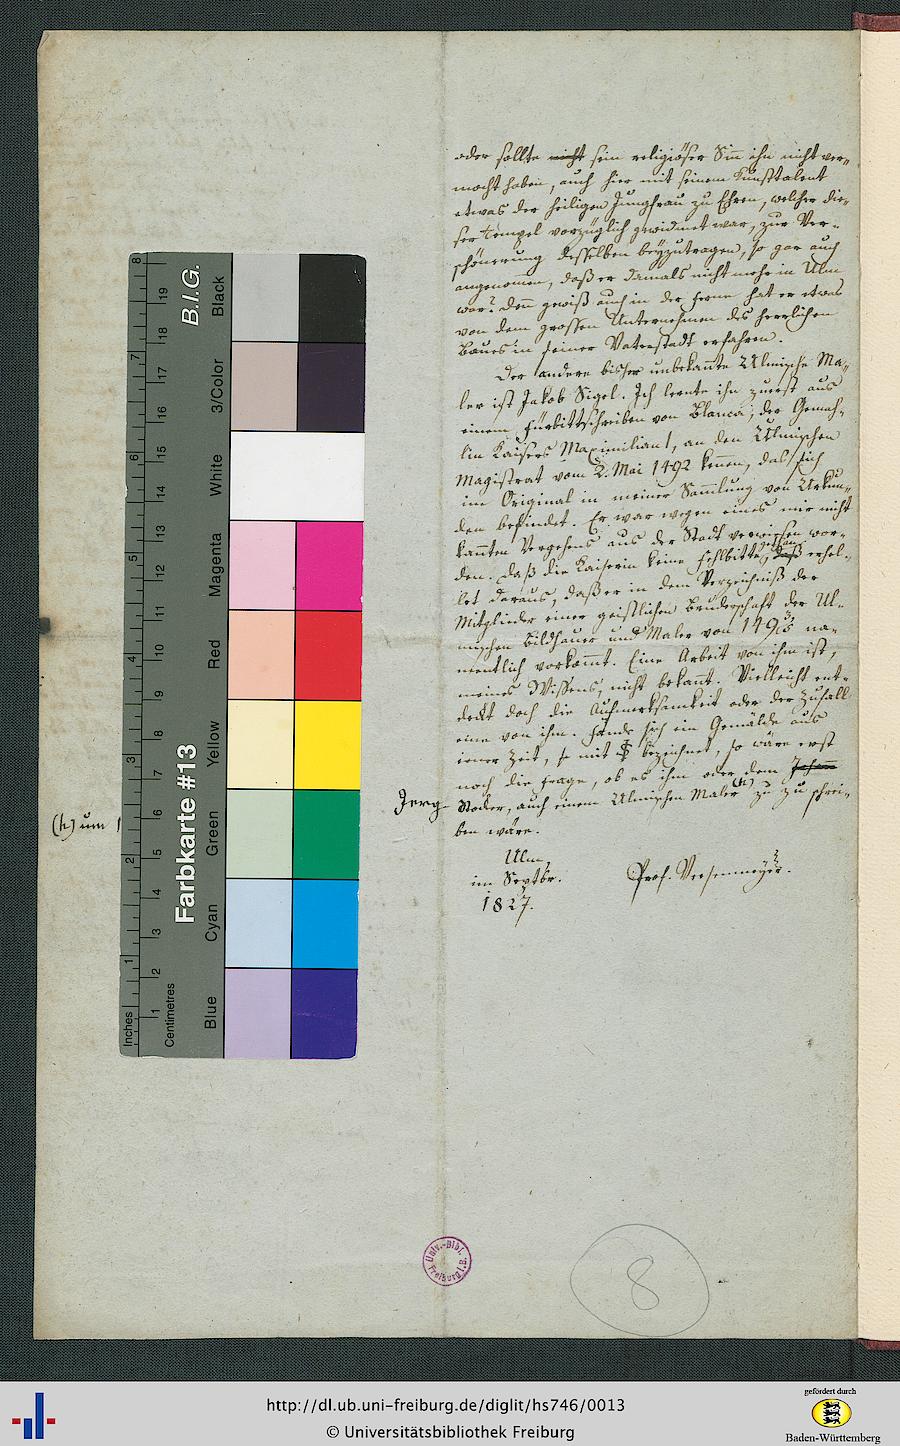 oder sollte nicht sein religiöser Sinn ihn nicht ver-
mocht haben, auch hier mit seinem Kunsttalent
etwas der heiligen Jungfrau zu Ehren, welcher die-
ser Tempel vorzüglich gewidmet war, zur Ver-
schönerung desselben beyzutragen, so gar auch
angenomen, daß er damals nicht mehr in Ulm
war? Denn gewiß auch in der Ferne hat er etwas
von dem großen Unternehmen des herrlichen
Baues in seiner Vaterstadt erfahren.
Der andere bisher unbekannte Ulmische Ma-
ler ist Jakob Sigel. Ich lernte ihn zuerst aus
einem Fürbittschreiben von Blanca, der Gemah-
lin Kaisers Maximilian I, an den Ulmischen
Magistrat vom 2. Mai 1492 kennen, das sich
im Original in meiner Sammlung von Urkun-
den befindet. Er war wegen eines mir nicht
kannten Vergehens aus der Stadt verwiesen wor-
den. Daß die Kaiserin keine Fehlbitte gethan, erhel-
let daraus, daß er in dem Verzeichniß der
Mitglieder einer geistlichen Bruderschaft der Ul-
mischen Bildhauer und Maler von 149 na-
mentlich vorkommt. Eine Arbeit von ihm ist,
meines Wissens, nicht bekannt. Vielleicht ent-
deckt doch die Aufmerksamkeit oder der Zufall
eine von ihm. Fände sich ein Gemälde aus
jener Zeit, mit S bezeichnet, so wäre erst
noch die Frage, ob es ihm oder dem Johann
Jerg Stoder, auch einem Ulmischen Maler (h) zu zu schrei-
ben wäre.
(h) um 1
Ulm,
im Septbr.
1827.
Prof. Veesenmeyer.
8
Univ.-Bibl. Freiburg i. B.
Farbkarte #13
B.I.G.
Inches
Centimetres
1 2 3 4 5 6 7 8
1 2 3 4 5 6 7 8 9 10 11 12 13 14 15 16 17 18 19
Blue
Cyan
Green
Yellow
Red
Magenta
White
3/Color
Black
http://dl.ub.uni-freiburg.de/diglit/hs746/0013
© Universitätsbibliothek Freiburg
gefördert durch
Baden-Württemberg